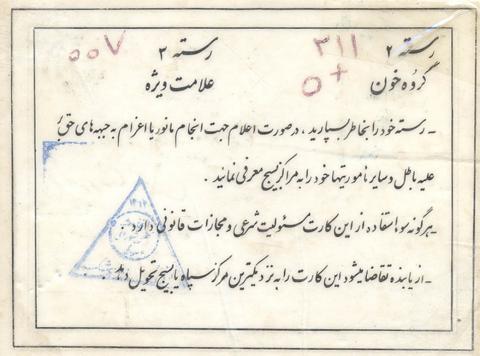 رسته ۲ ۳۱۱ رسته ۳ ۰۰۷
گروه خون O+ علامت ویژه
ـ رسته خود را بخاطر بسپارید ، در صورت اعلام جهت انجام مانور یا اعزام به جبهه های حق
علیه باطل و سایر ماموریتها خود را به مراکز بسیج معرفی نمائید .
ـ هرگونه سوء استفاده از این کارت مسئولیت شرعی و مجازات قانونی دارد .
ـ از یابنده تقاضا میشود این کارت را به نزدیکترین مرکز سپاه یا بسیج تحویل دهد .